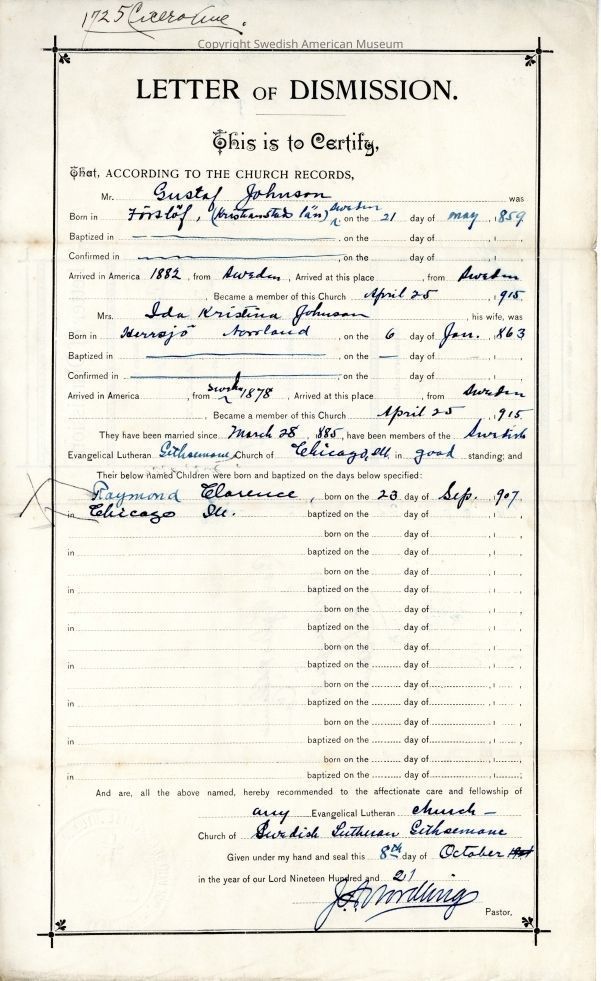 1725 Cicero Ave.
Copyright Swedish American Museum
LETTER OF DISMISSION.
This is to Certify,
That, ACCORDING TO THE CHURCH RECORDS,
Mr. Gustaf Johnson was
Born in Förslöf, (Kristianstads län) Sweden, on the 21 day of may, 1859
Baptized in , on the day of , 1
Confirmed in , on the day of , 1
Arrived in America 1882, from Sweden, Arrived at this place , from Sweden
, Became a member of this Church April 25, 1915.
Mrs. Ida Kristina Johnson, his wife, was
Born in Herrsjö Norrland, on the 6 day of Jan. 1863
Baptized in , on the — day of , 1
Confirmed in , on the day of , 1
Arrived in America , from 1878, Arrived at this place , from Sweden
, Became a member of this Church April 25, 1915
They have been married since March 28, 1885, have been members of the Swedish
Evangelical Lutheran Githsemane Church of Chicago, Ill. in good standing; and
Their below named Children were born and baptized on the days below specified:
Raymond Clarence, born on the 23 day of Sep. 1907
in Chicago Ill. baptized on the day of , 1
born on the day of , 1
in baptized on the day of , 1
born on the day of , 1
in baptized on the day of , 1
born on the day of , 1
in baptized on the day of , 1
born on the day of , 1
in baptized on the day of , 1
born on the day of , 1
in baptized on the day of , 1
born on the day of , 1
in baptized on the day of , 1
born on the day of , 1
in baptized on the day of , 1;
And are, all the above named, hereby recommended to the affectionate care and fellowship of
any Evangelical Lutheran church —
Church of Swedish Lutheran Githsemane
Given under my hand and seal this 8th day of October
in the year of our Lord Nineteen Hundred and 21
Nordling
Pastor.